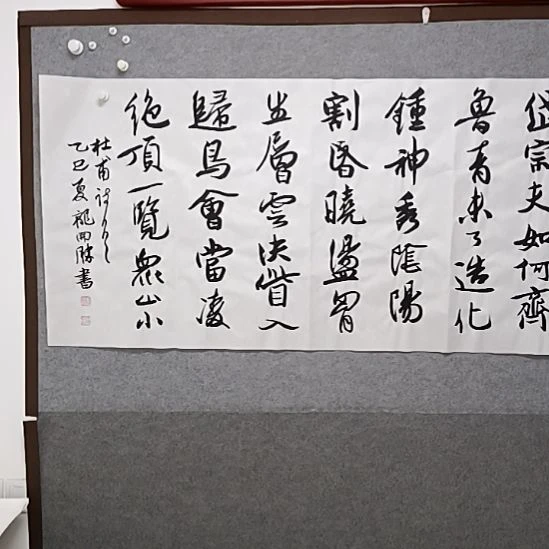 岱宗夫如何齊
魯青未了造化
鍾神秀陰陽
割昏曉盪胷
生層雲决眥入
歸鳥會當凌
絶頂一覽衆山小
杜甫詩
乙巳夏龍書